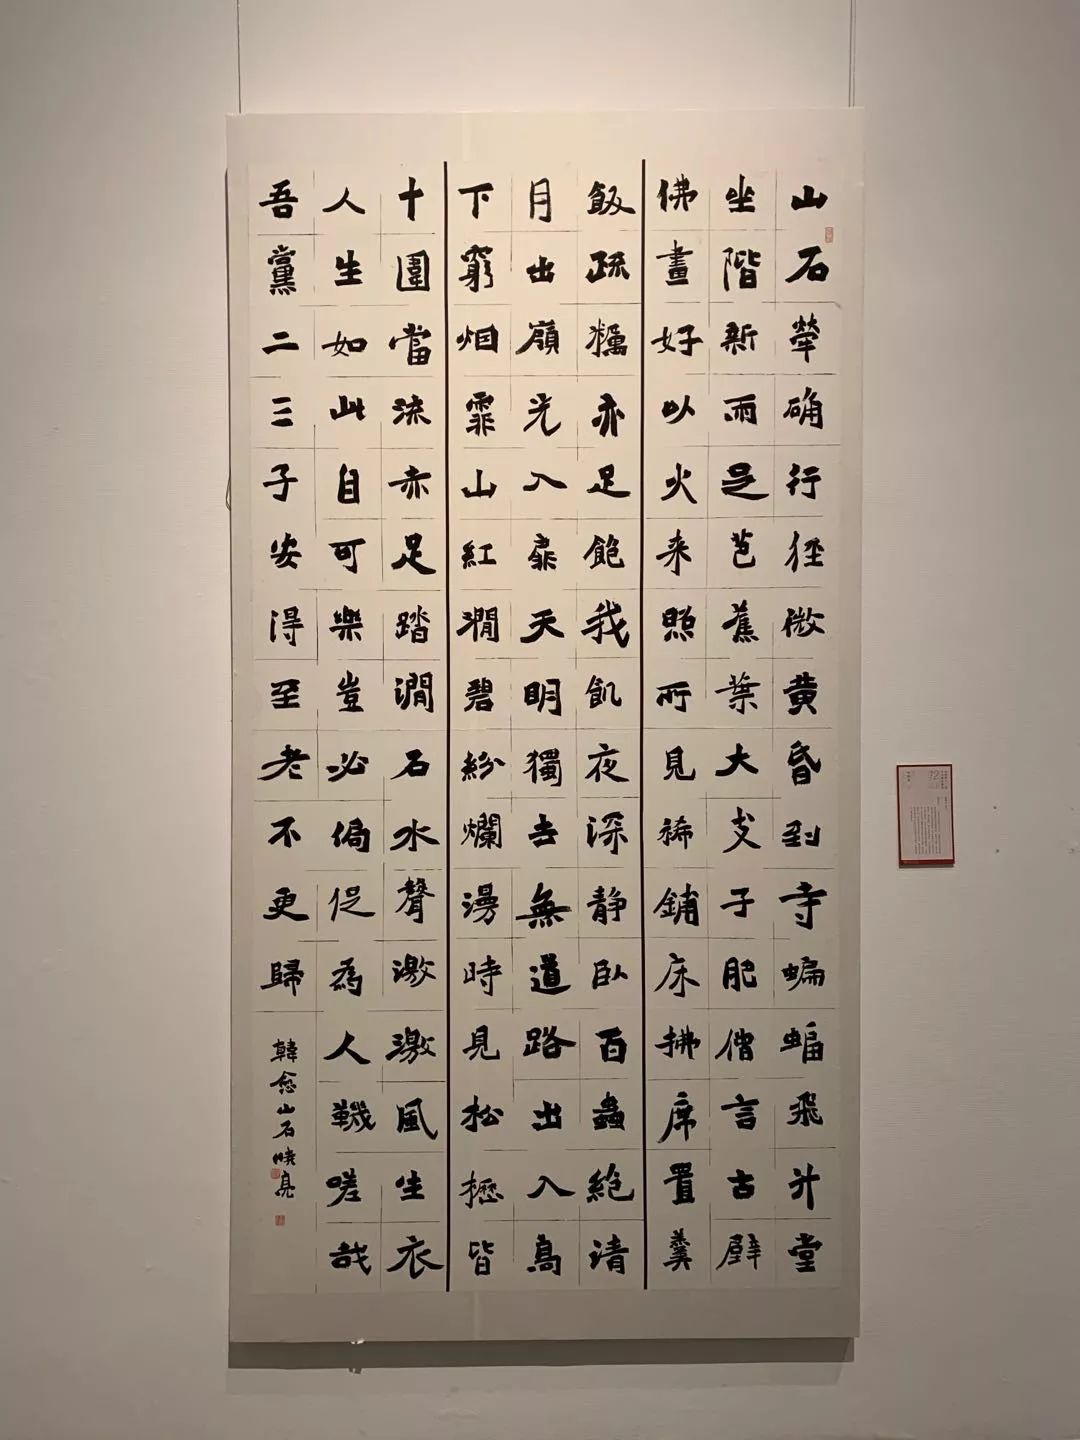 山石犖确行徑微黄昏到寺蝙蝠飛升堂
坐階新雨足芭蕉葉大支子肥僧言古壁
佛畫好以火来照所見稀鋪床拂席置羹
飯疏糲亦足飽我飢夜深静臥百蟲絕清
月出嶺光入扉天明獨去無道路出入高
下窮烟霏山紅澗碧紛爛漫時見松櫪皆
十圍當流赤足踏澗石水聲激激風生衣
人生如此自可樂豈必侷促為人鞿嗟哉
吾黨二三子安得至老不更歸
韓愈山石曉亮